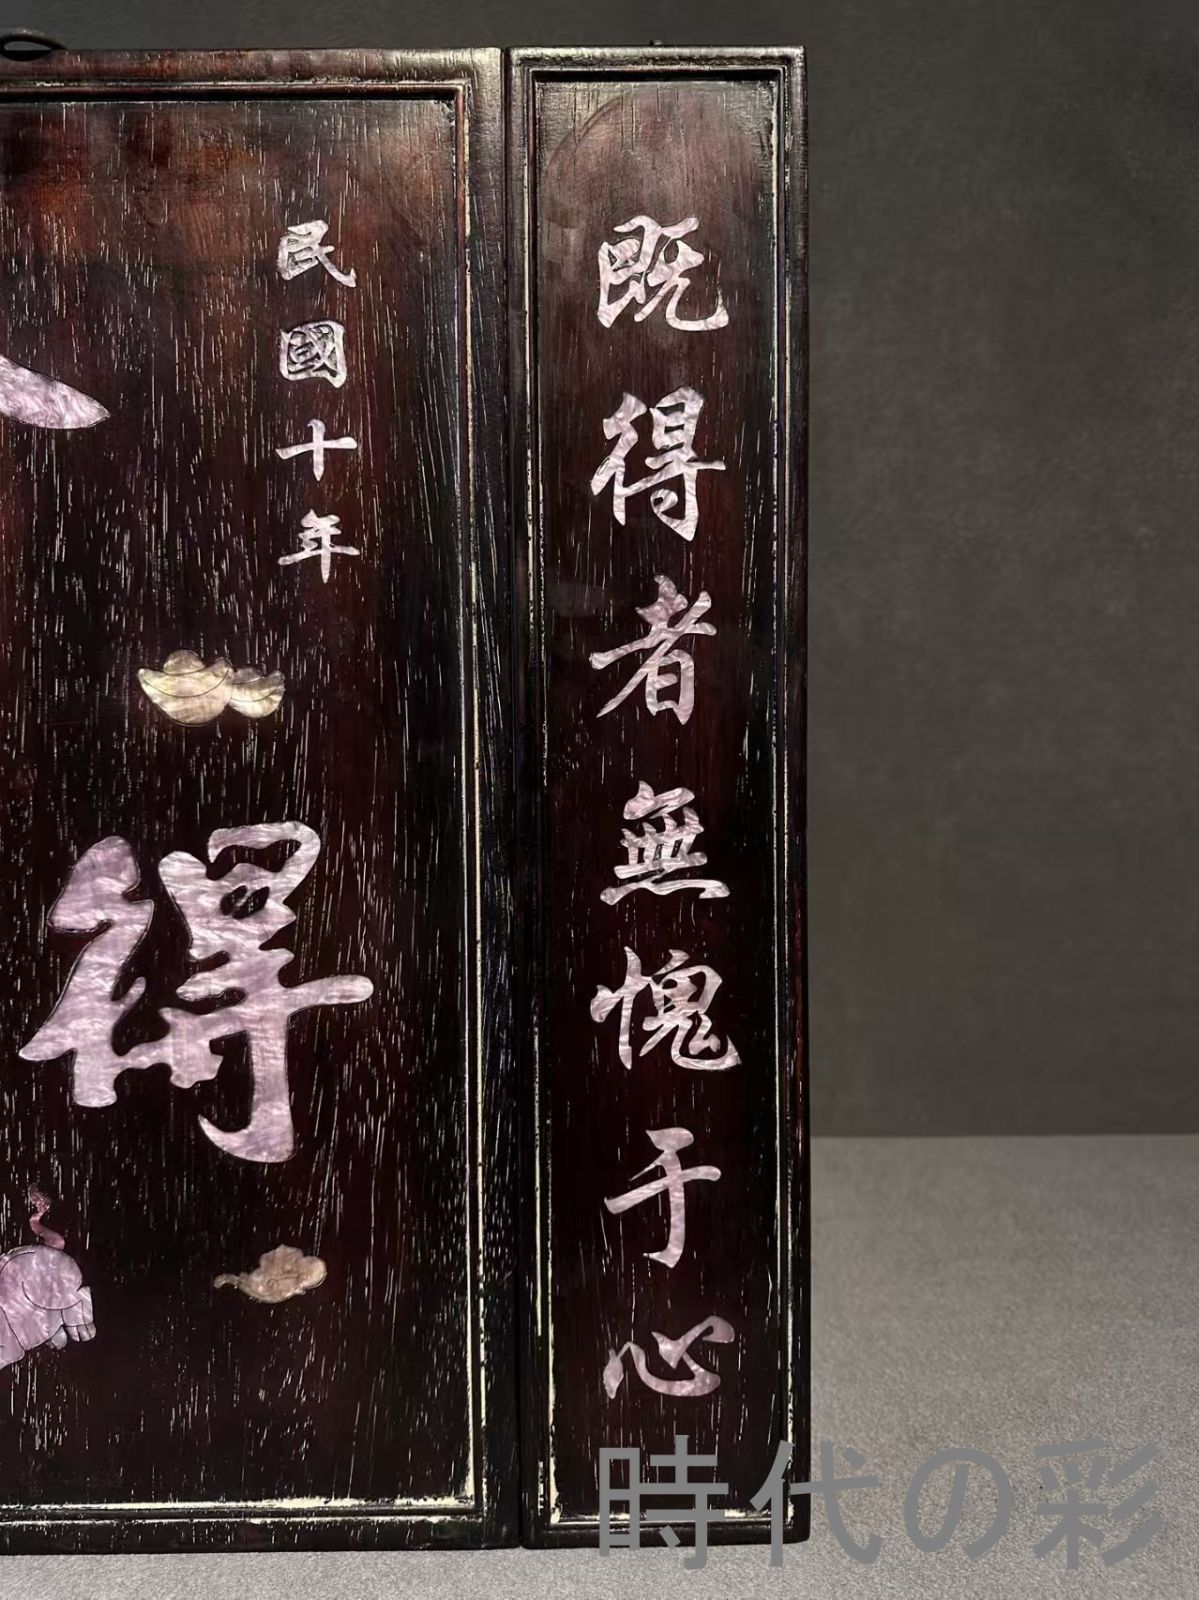 既得者無愧于心
民國十年
得
時代の彩